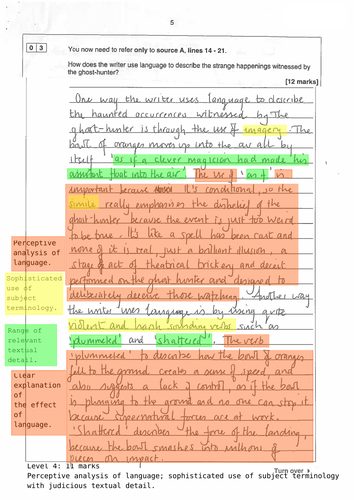 5
0 3
You now need to refer only to source A, lines 14 - 21.
How does the writer use language to describe the strange happenings witnessed by
the ghost-hunter?
[12 marks]
One way the writer uses language to describe
the haunted occurrences witnessed by the
ghost-hunter is through the use of imagery. The
bowl of oranges moves up into the air all by
itself 'as if a clever magician had made his
assistant float into the air'. The use of 'as if' is
important because it's conditional, so the
simile really emphasises the disbelief of the
ghost-hunter because the event is just too weird
to be true. It's like a spell has been cast and
none of it is real, just a brilliant illusion, a
stage of act of theatrical trickery and deceit
performed on the ghost hunter and designed to
deliberately deceive those watching. Another way
the writer uses language is by using quite
violent and harsh sounding verbs such as
'plummeted' and 'shattered'. The verb
'plummeted' to describe how the bowl of oranges
fall to the ground creates a sense of speed, and
also suggests a lack of control, as if the bowl
is plunging to the ground and no one can stop it
because supernatural forces are at work.
'Shattered' describes the force of the landing,
because the bowl smashes into millions of
pieces on impact.
Perceptive
analysis of
language.
Sophisticated
use of
subject
terminology.
Range of
relevant
textual
detail.
Clear
explanation
of
the effect
of
language.
Turn over
Level 4: 11 marks
Perceptive analysis of language; sophisticated use of subject terminology
with judicious textual detail.